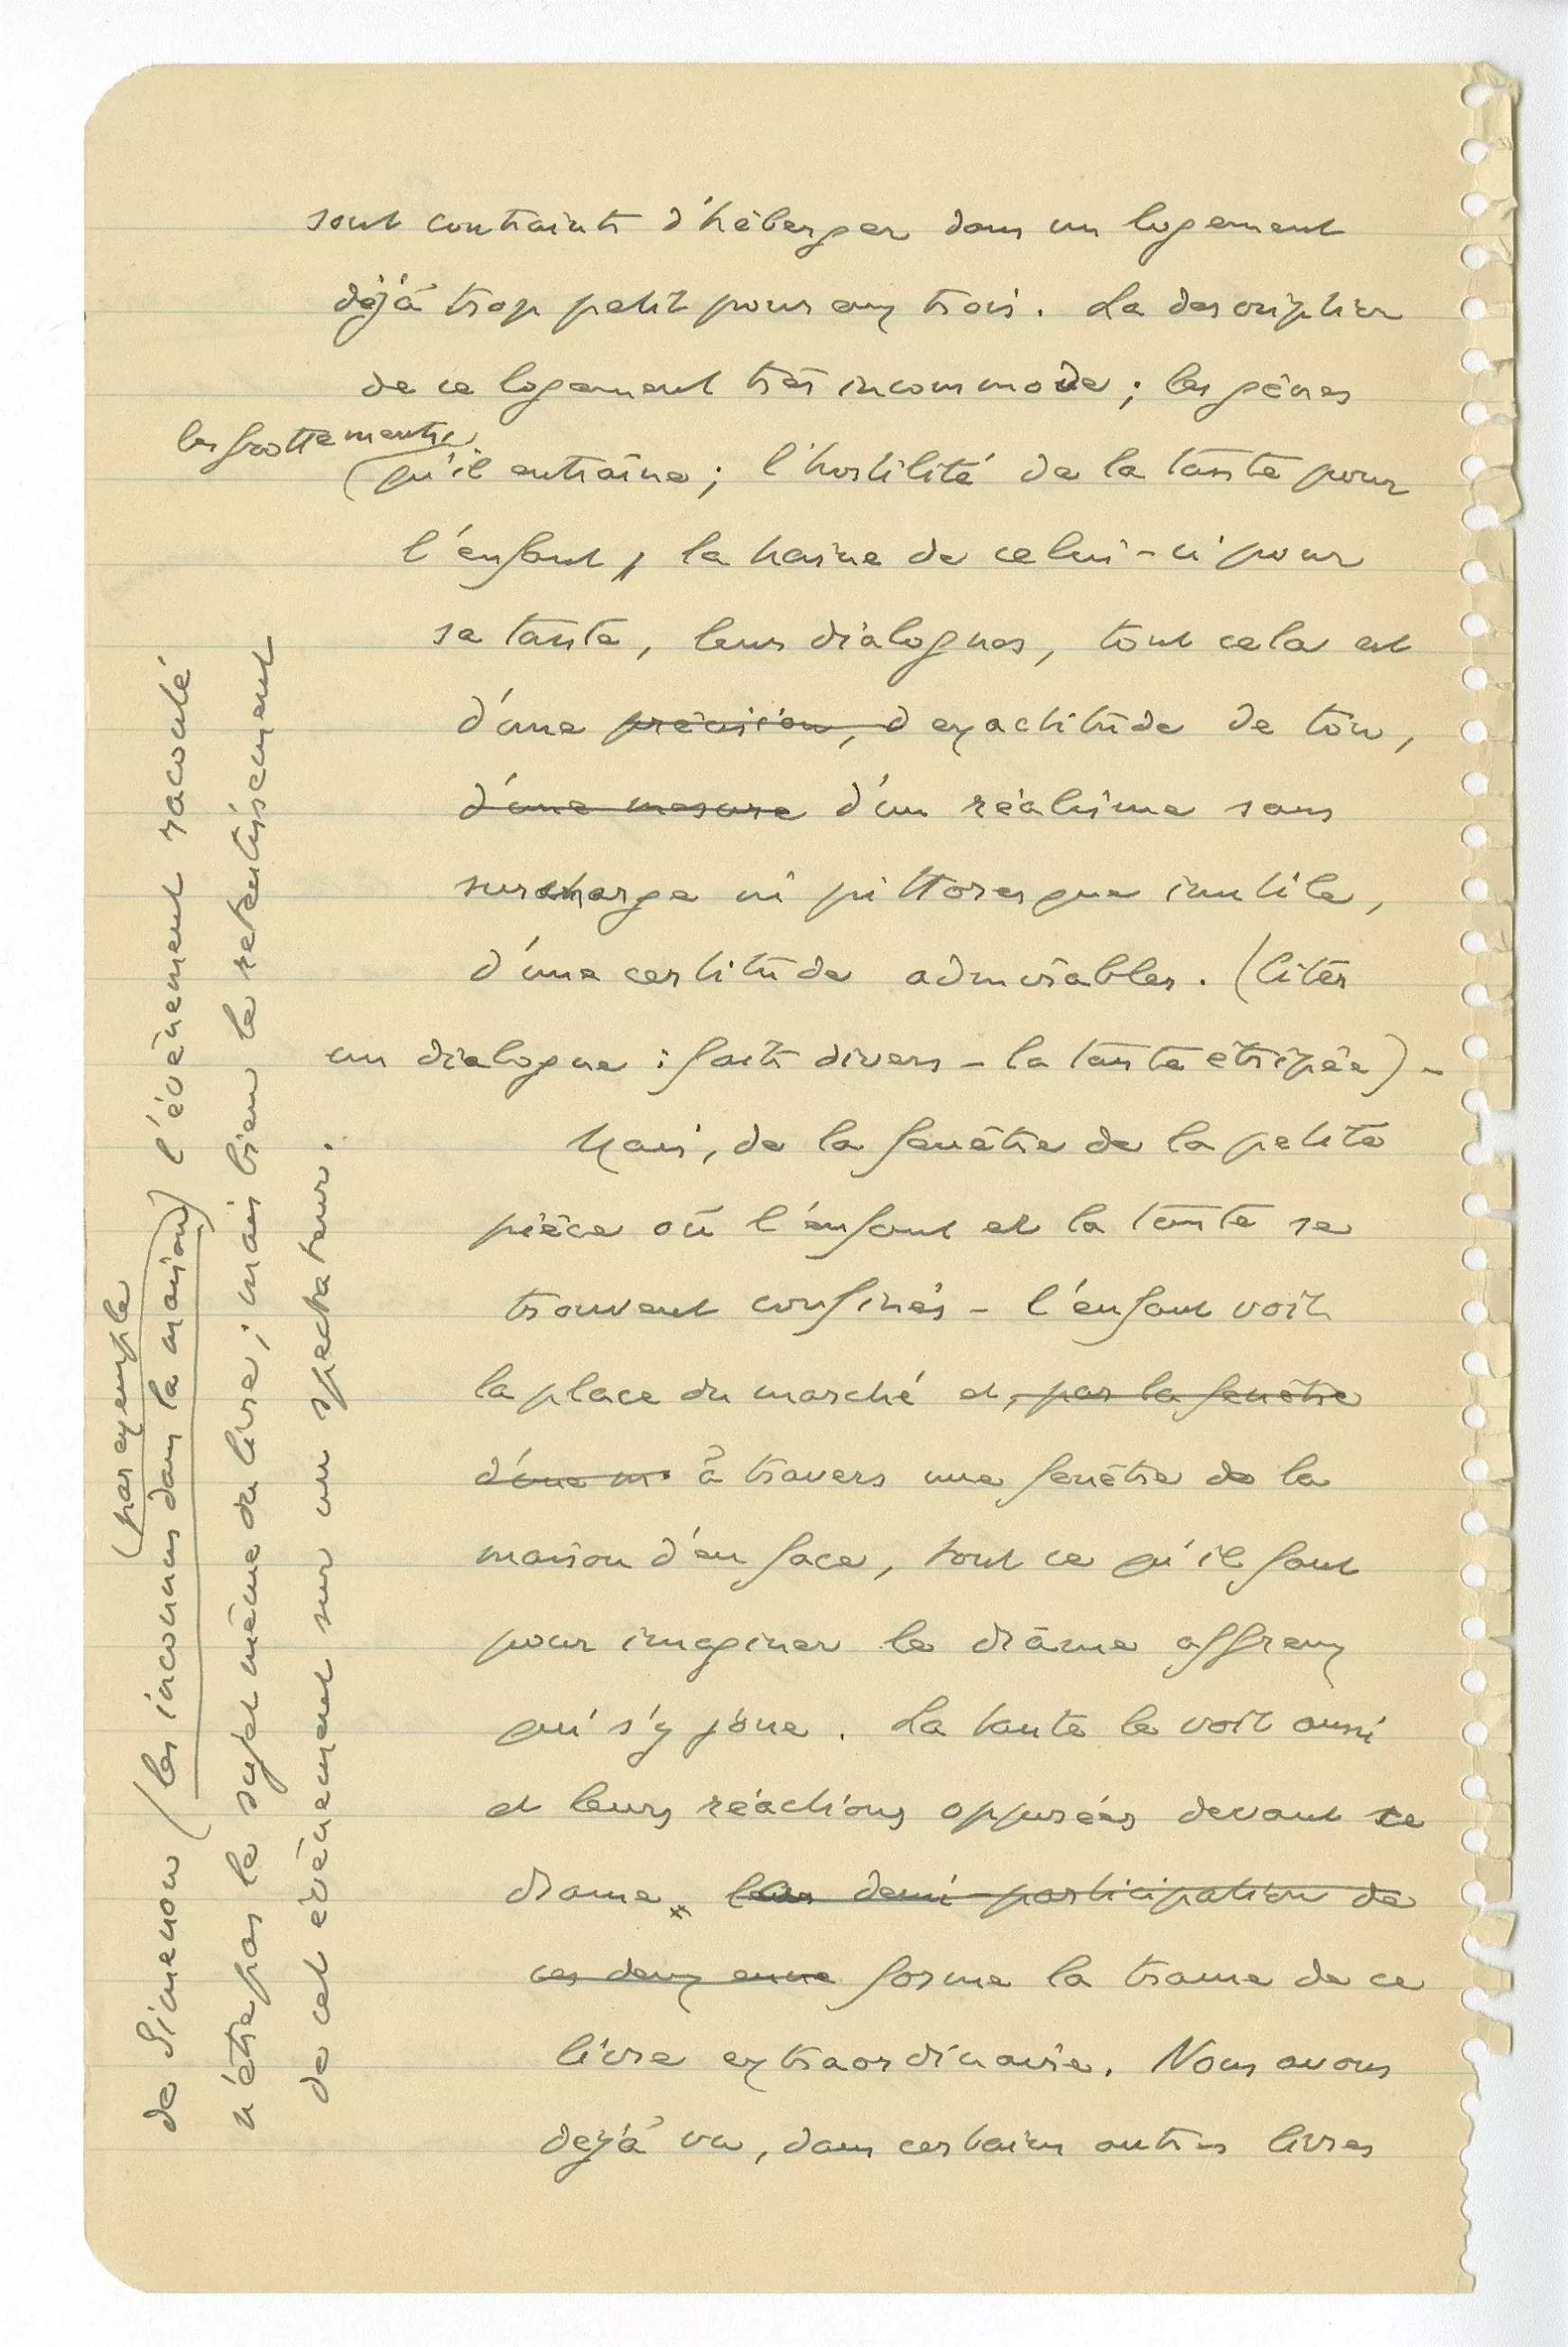 sont contraints d'héberger dans un logement
déjà trop petit pour eux trois. La description
de ce logement très incommode ; les gênes
les frottements
qu'il entraîne ; l'hostilité de la tante pour
l'enfant, la haine de celui-ci pour
sa tante, leurs dialogues, tout cela est
d'une précision, d'exactitude de ton,
d'une mesure d'un réalisme sans
surcharge ni pittoresque inutile,
d'une certitude admirables. (Citer
un dialogue : faits divers – la tante étripée) –
Mais, de la fenêtre de la petite
pièce où l'enfant et la tante se
trouvent confinés – l'enfant voit
la place du marché et, par la fenêtre
d'une m. à travers une fenêtre de la
maison d'en face, tout ce qu'il faut
pour imaginer le drâme affreux
qui s'y joue. La tante le voit aussi
et leurs réactions opposées devant ce
drame, leur demi-participation de
ces deux forme la trame de ce
livre extraordinaire. Nous avons
déjà vu, dans certains autres livres
de Simenon (les inconnus dans la maison) l'évènement raconté
(par exemple
n'être pas le sujet même du livre ; mais bien le retentissement
de cet évènement sur un spectateur.